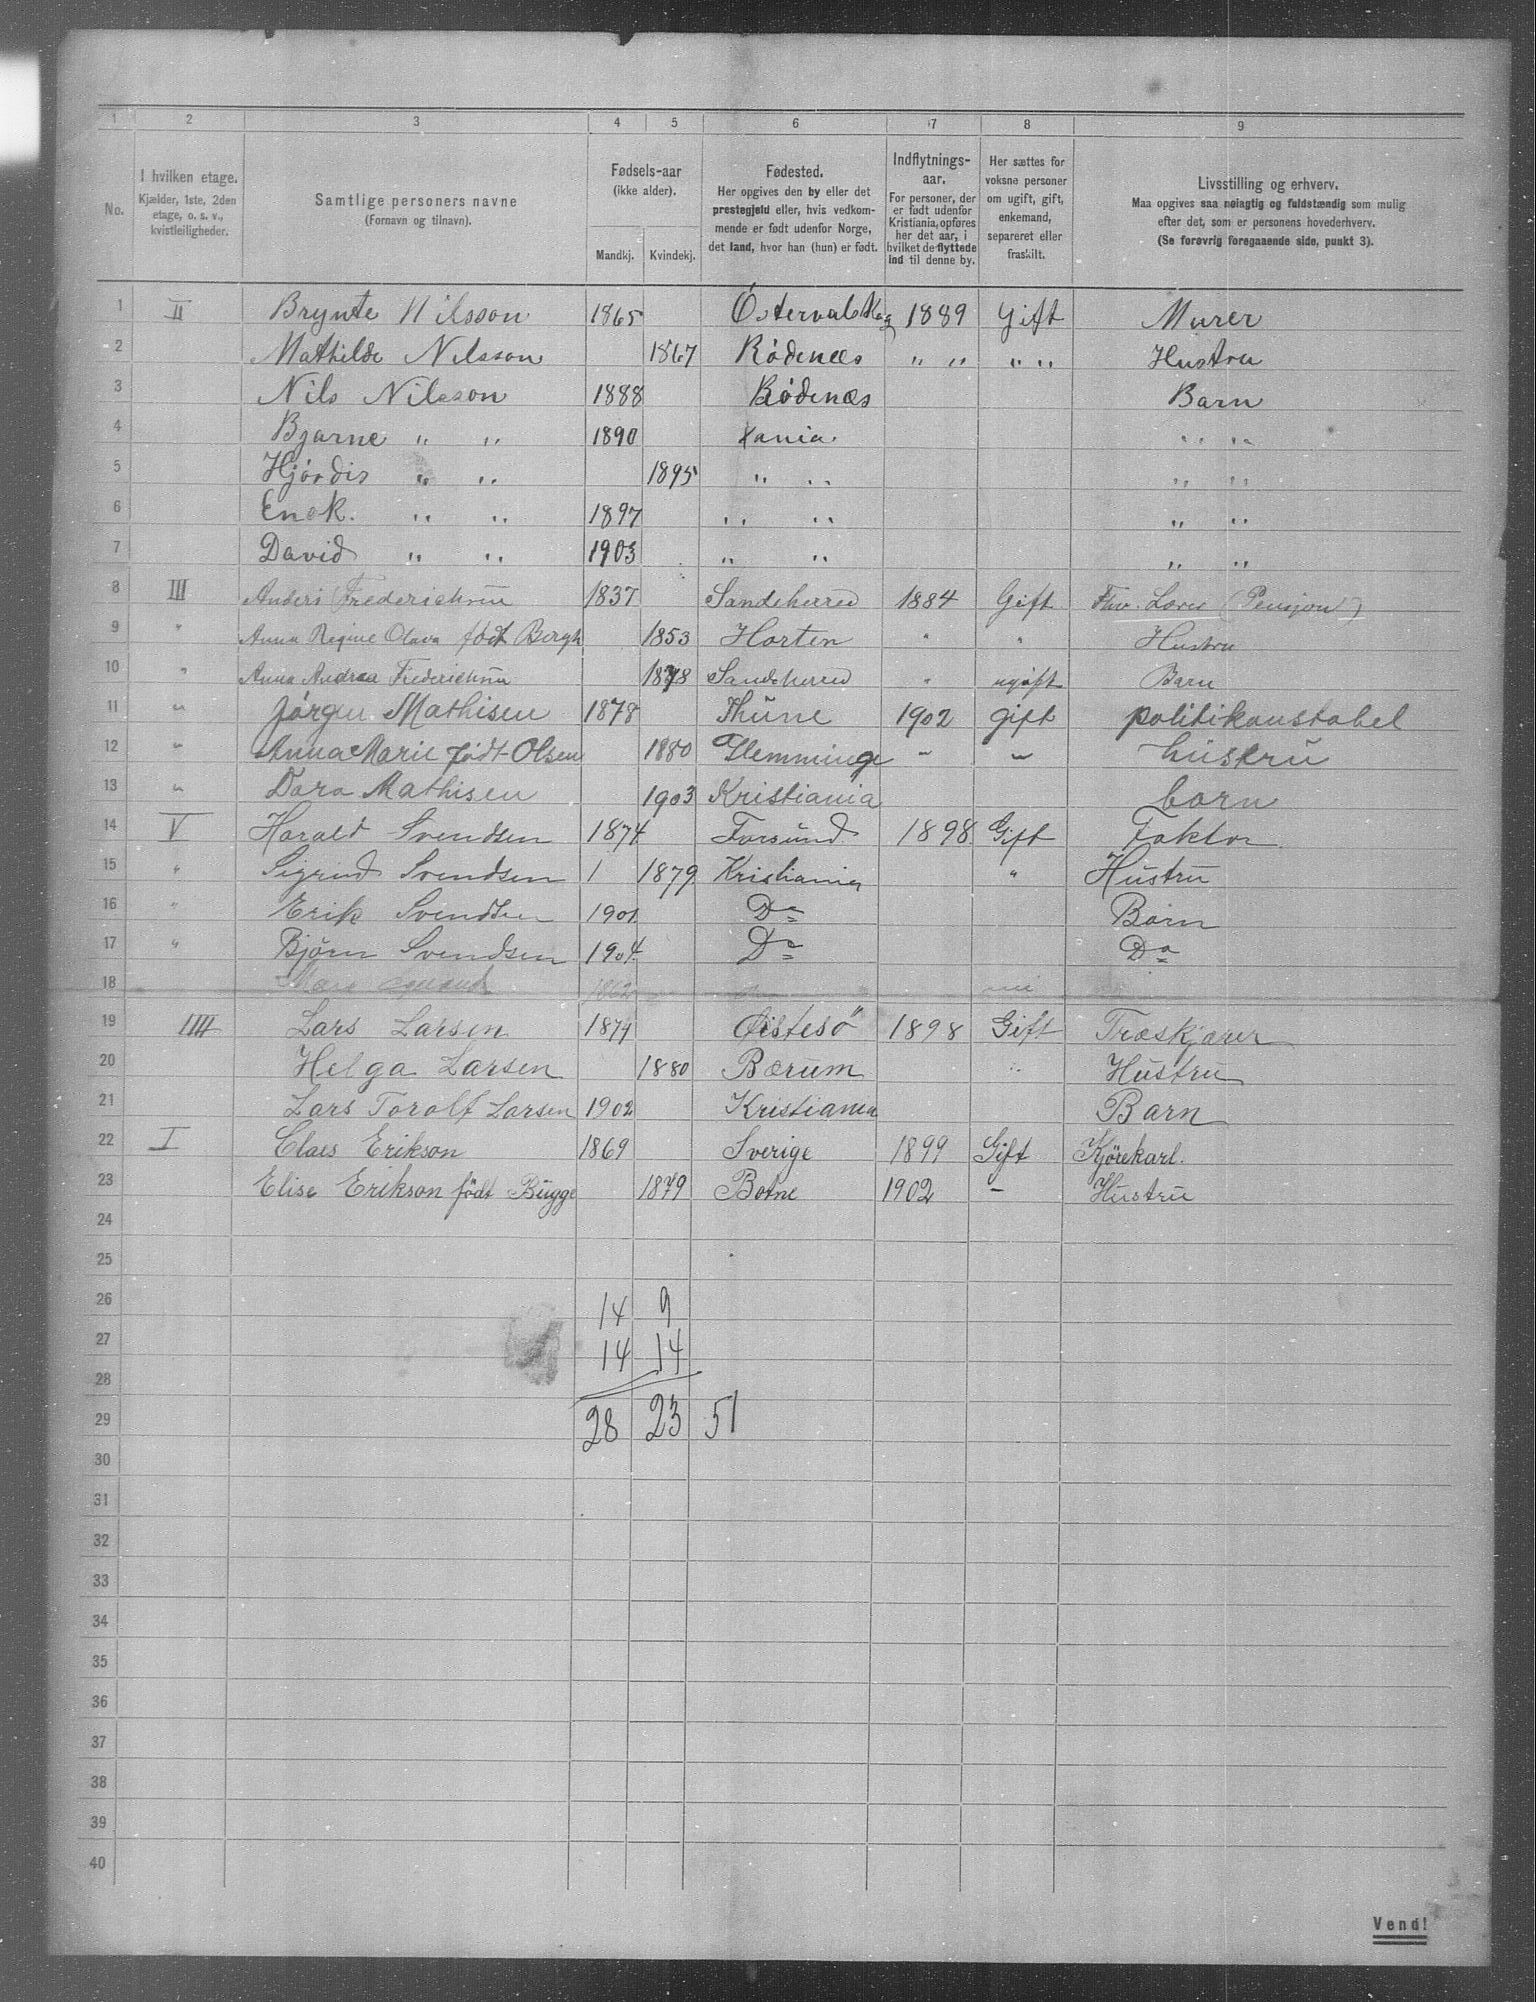 1 2 3 4 5 6 7 8 9
No. I hvilken etage. Kjælder, 1ste, 2den etage, o. s. v., kvistleiligheder. Samtlige personers navne (Fornavn og tilnavn). Fødsels-aar (ikke alder). Mandkj. Kvindekj. Fødested. Her opgives den by eller det prestegjeld eller, hvis vedkommende er født udenfor Norge, det land, hvor han (hun) er født. Indflytnings-aar. For personer, der er født udenfor Kristiania, opføres her det aar, i hvilket de flyttede ind til denne by. Her sættes for voksne personer om ugift, gift, enkemand, separeret eller fraskilt. Livsstilling og erhverv. Maa opgives saa nøiagtig og fuldstændig som mulig efter det, som er personens hovederhverv. (Se forøvrig foregaaende side, punkt 3).
1 II Brynte Nilsson 1865 1889 Gift Murer
2 Mathilde Nilsson 1867 Rødenæs " " " " Hustru
3 Nils Nilsson 1888 Rødenæs Barn
4 Bjarne " " 1890 Xania " "
5 Hjørdis " " 1895 " " " "
6 Enok. " " 1897 " " " "
7 David " " 1903 " " " "
8 III Anders Frederichsen 1837 Sandeherred 1884 Gift (Pensjon)
9 " Anna Regine Olava født Bergh 1853 Horten " " Hustru
10 " Anna Andrea Frederichsen 1878 Sandeherred " ugift Barn
11 " Jørgen Mathisen 1878 Thune 1902 gift politikonstabel
12 " Anna Marie født Olsen 1880 Glemminge " " hüstrü
13 " Dora Mathisen 1903 Kristiania barn
14 V Harald Svendsen 1874 Farsund 1898 Gift Faktor
15 " Sigrid Svendsen 1 1879 Kristiania " Hustru
16 " Erik Svendsen 1901 Do Barn
17 " Bjørn Svendsen 1904 Do Do
18
19 IIII Lars Larsen 1874 Øistesö 1898 Gift Træskjærer
20 Helga Larsen 1880 Bærum " Hüstru
21 Lars Toralf Larsen 1902 Kristiania Barn
22 I Claes Erikson 1869 Sverige 1899 Gift Kjørekarl.
23 Elise Erikson født Bügge 1879 Botne 1902 - Hüstrü
24
25
26 14 9
27 14 14
28
29 28 23 51
30
31
32
33
34
35
36
37
38
39
40
Vend!